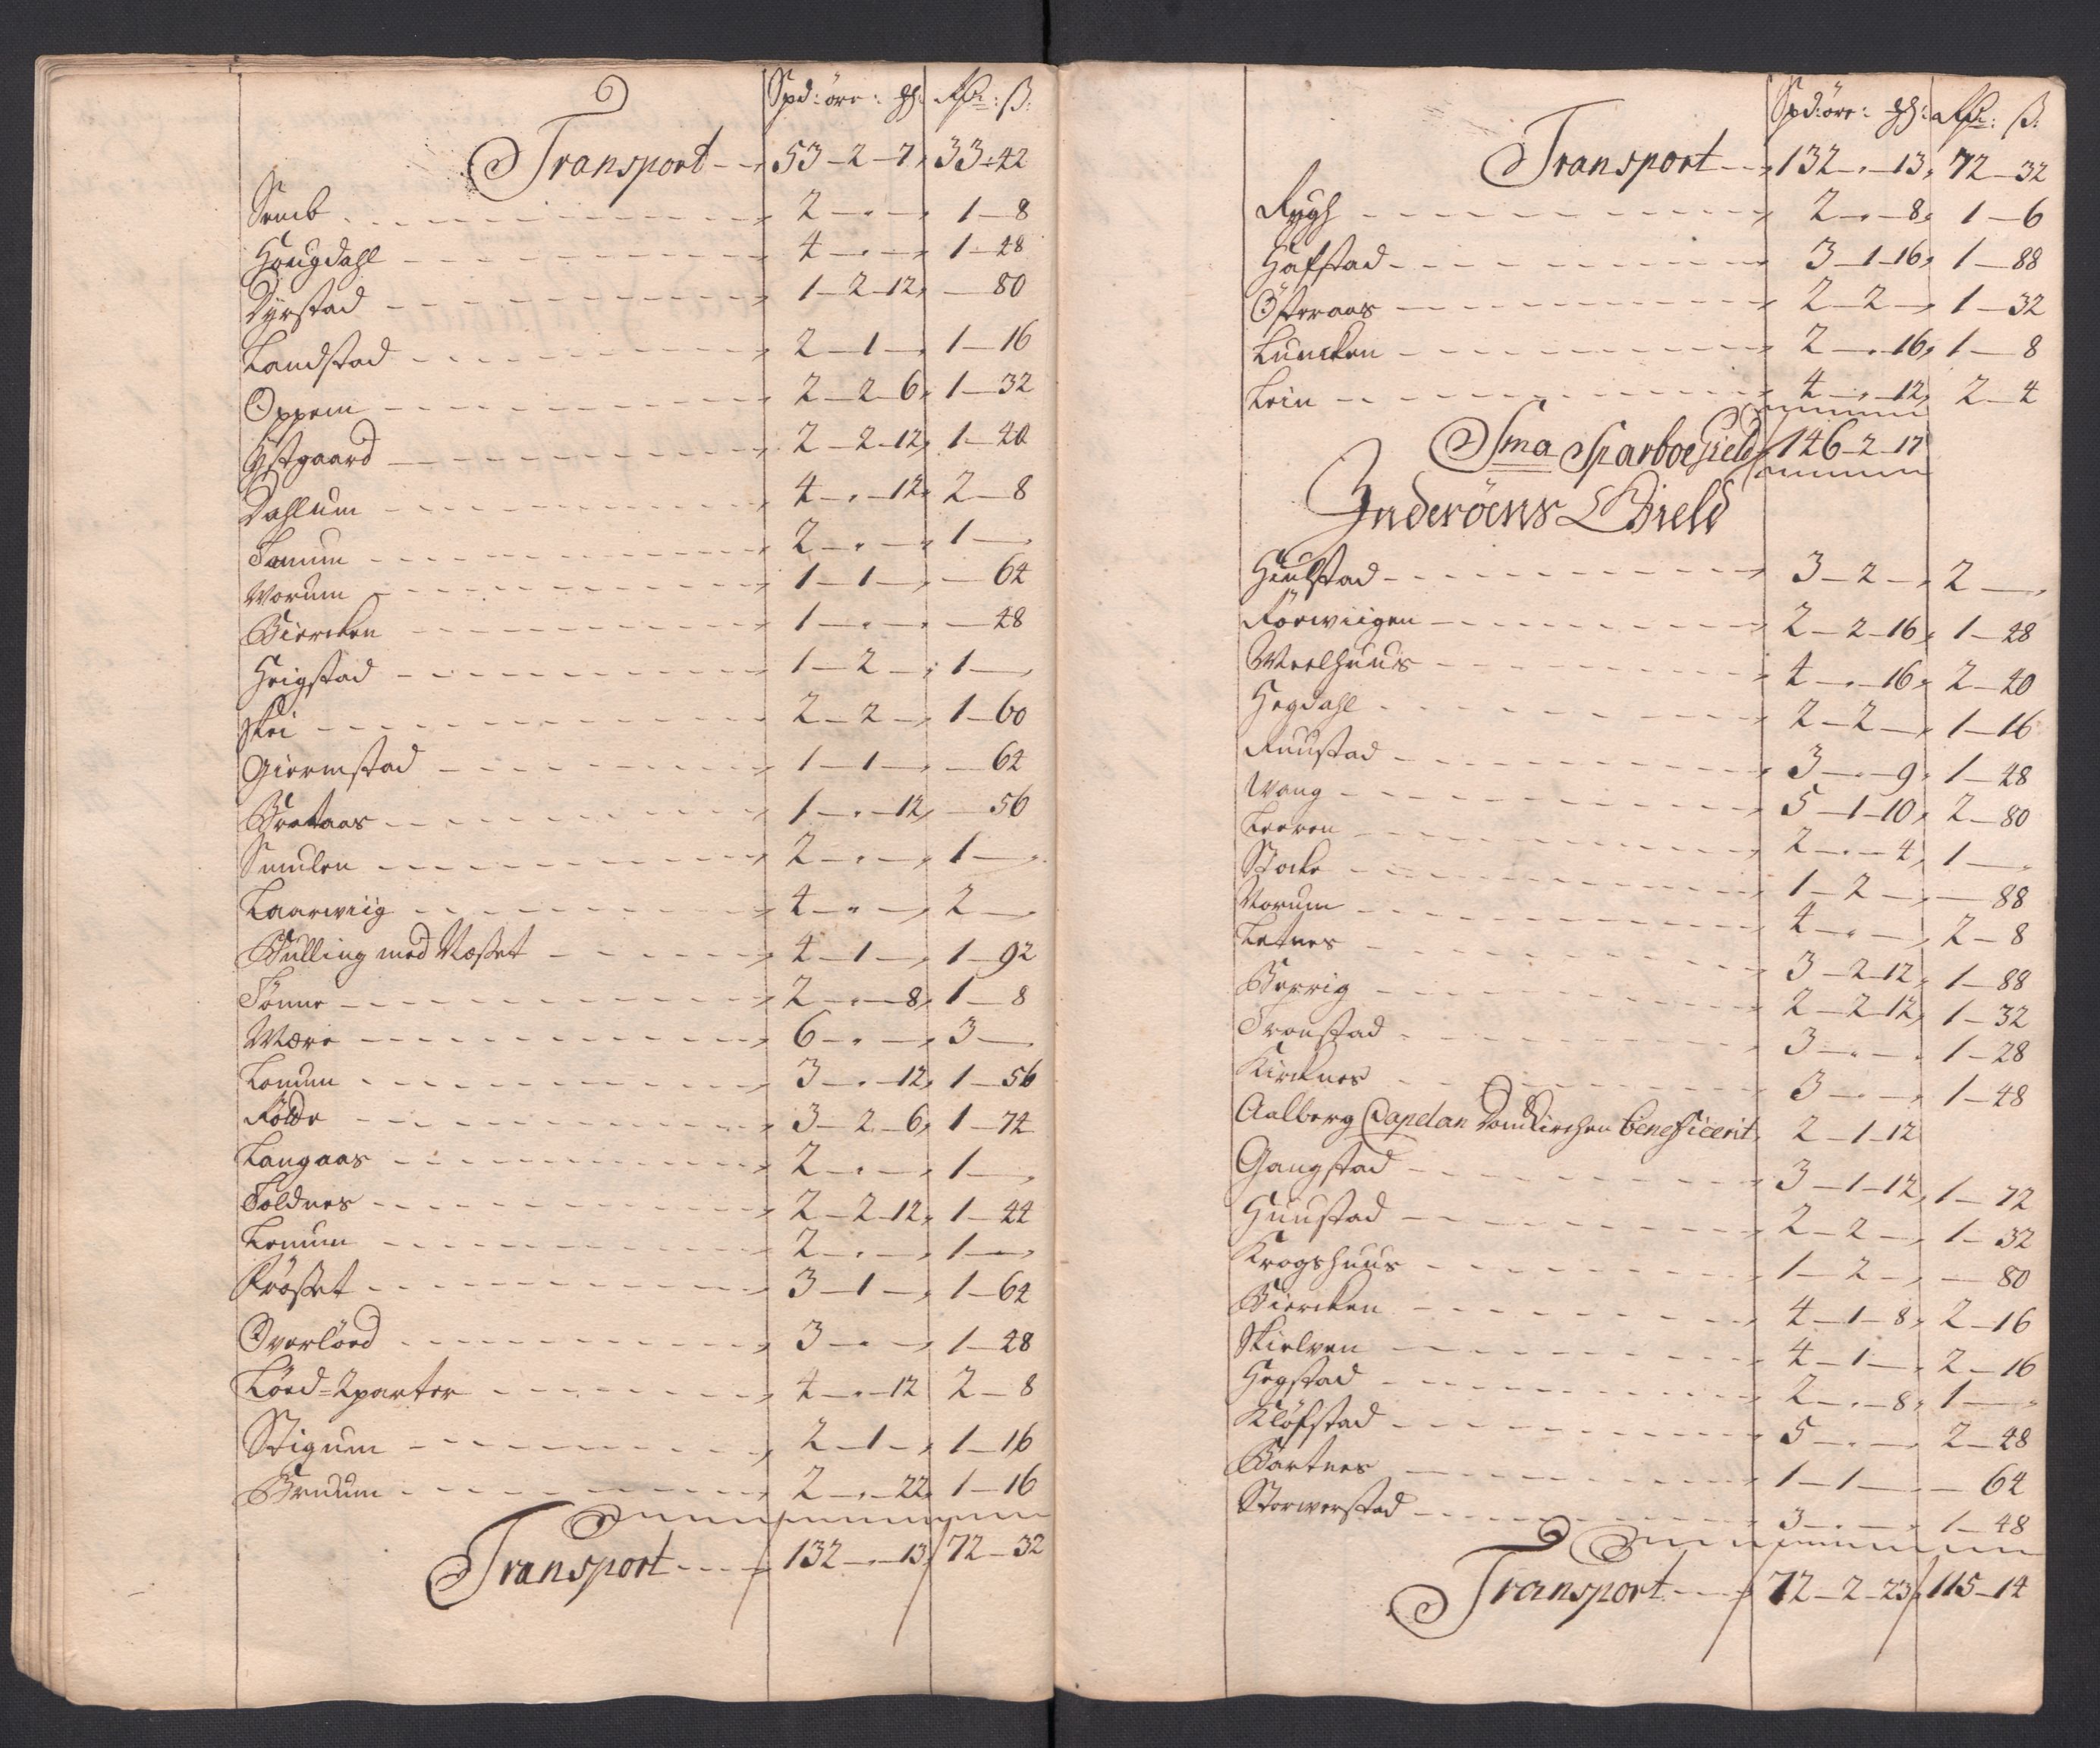 Spd: öre: Rdr: ß:
Transport 53-2-7 33-42
Semb 2 - - 1-8
Hougdahl 4 - - 1-48
Dyrstad 1-2-12 -80
Landstad 2-1- 1-16
Oppem 2-2-6 1-32
Østgaard 2-2-12 1-40
Dahlum 4 - -12 2-8
Tanum 2 - - 1 -
Worum 1-1- -64
Biercken 1 - - -48
Heigstad 1-2- 1 -
Skei 2-2- 1-60
Giermstad 1-1- -64
Brataas 1 - -12 -56
Smulen 2 - - 1 -
Laarwiig 4 - - 2 -
Bulling med Næsset 4-1- 1-92
Tönne 2 - -8 1-8
Mære 6 - - 3 -
Lomum 3 - -12 1-56
Földe 3-2-6 1-74
Langaas 2 - - 1 -
Toldnes 2-2-12 1-44
Lemum 2 - - 1 -
Røsset 3-1- 1-64
Overlöed 3 - - 1-48
Löed-2parter 4 - -12 2-8
Stigum 2-1- 1-16
Bruum 2 - -22 1-16
Transport 132 - -13 72-32
Spd: öre: Rdr: ß:
Transport 132 - -13 72-32
Rygh 2 - -8 1-6
Hafstad 3-1-16 1-88
Österaas 2-2- 1-32
Luncken 2 - -16 1-8
Lein 4 - -12 2-4
Sma Sparboe Gield 146-2-17
Inderöens Gield
Hiulstad 3-2- 2 -
Rörwiigen 2-2-16 1-48
Weelhuus 4 - -16 2-40
Hegdahl 2-2- 1-16
Ruustad 3 - -9 1-48
Wang 5-1-10 2-80
Leeren 2 - -4 1 -
Stocke 1-2- -88
Norum 4 - - 2-8
Letnes 3-2-12 1-88
Berrig 2-2-12 1-32
Tronstad 3 - - 1-28
Kircknes 3 - - 1-48
Aalberg Capelan Domkirchen beneficerit 2-1-12
Gangstad 3-1-12 1-72
Huustad 2-2- 1-32
Krogshuus 1-2- -80
Biercken 4-1-8 2-16
Skielven 4-1- 2-16
Hegstad 2 - -8 1 -
Klöfstad 5 - - 2-48
Bartnes 1-1- -64
Storwerstad 3 - - 1-48
Transport 72-2-23 115-14